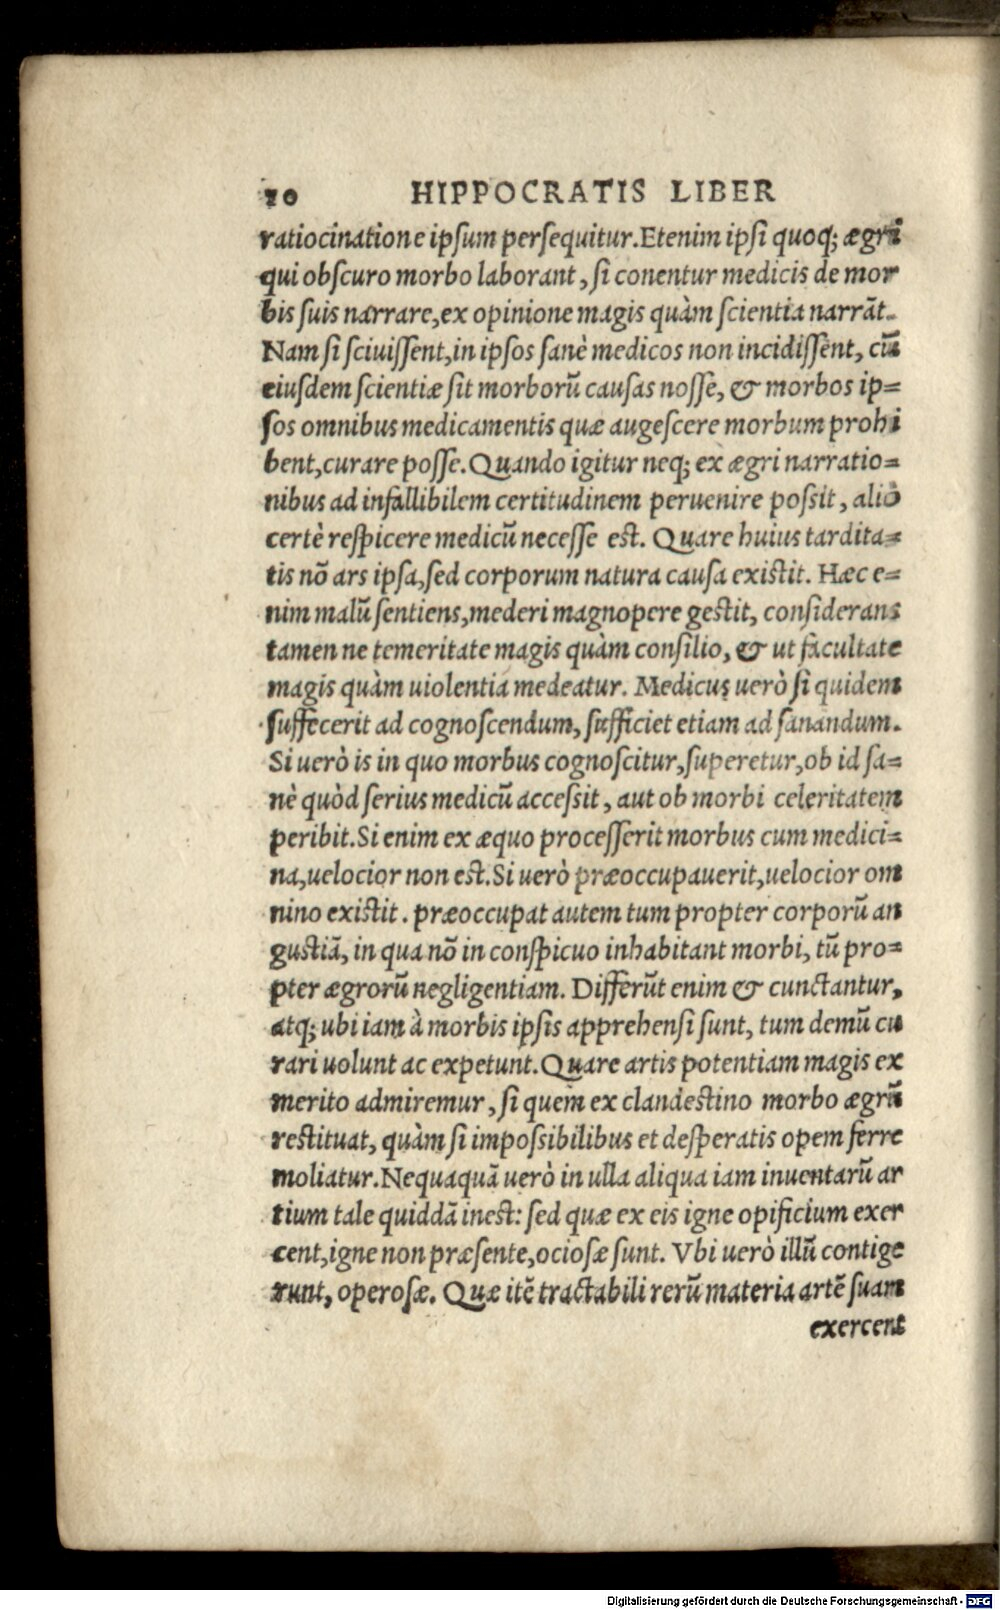 10 HIPPOCRATIS LIBER
ratiocinatione ipſum perſequitur. Etenim ipſi quoq; ægri
qui obſcuro morbo laborant, ſi conentur medicis de mor
bis ſuis narrare, ex opinione magis quàm ſcientia narrāt.
Nam ſi ſciuiſſent, in ipſos ſanè medicos non incidiſſent, cū
eiuſdem ſcientiæ ſit morborū cauſas noſſe, & morbos ip=
ſos omnibus medicamentis quæ augeſcere morbum prohi
bent, curare poſſe. Quando igitur neq; ex ægri narratio=
nibus ad infallibilem certitudinem peruenire poſsit, aliò
certè reſpicere medicū neceſſe est. Quare huius tardita=
tis nō ars ipſa, ſed corporum natura cauſa existit. Hæc e=
nim malū ſentiens, mederi magnopere gestit, conſiderans
tamen ne temeritate magis quàm conſilio, & ut facultate
magis quàm uiolentia medeatur. Medicus uerò ſi quidem
ſuffecerit ad cognoſcendum, ſufficiet etiam ad ſanandum.
Si uerò is in quo morbus cognoſcitur, ſuperetur, ob id ſa=
nè quòd ſerius medicū acceſsit, aut ob morbi celeritatem
peribit. Si enim ex æquo proceſſerit morbus cum medici=
na, uelocior non est. Si uerò præoccupauerit, uelocior om
nino existit. præoccupat autem tum propter corporū an
gustiā, in qua nō in conſpicuo inhabitant morbi, tū pro=
pter ægrorū negligentiam. Differūt enim & cunctantur,
atq; ubi iam à morbis ipſis apprehenſi ſunt, tum demū cu
rari uolunt ac expetunt. Quare artis potentiam magis ex
merito admiremur, ſi quem ex clandestino morbo ægrū
restituat, quàm ſi impoſsibilibus et deſperatis opem ferre
moliatur. Nequaquā uerò in ulla aliqua iam inuentarū ar
tium tale quiddā inest: ſed quæ ex eis igne opificium exer
cent, igne non præſente, ocioſæ ſunt. Vbi uerò illū contige
runt, operoſæ. Quæ itē tractabili rerū materia artē ſuam
exercent
Digitalisierung gefördert durch die Deutsche Forschungsgemeinschaft - DFG